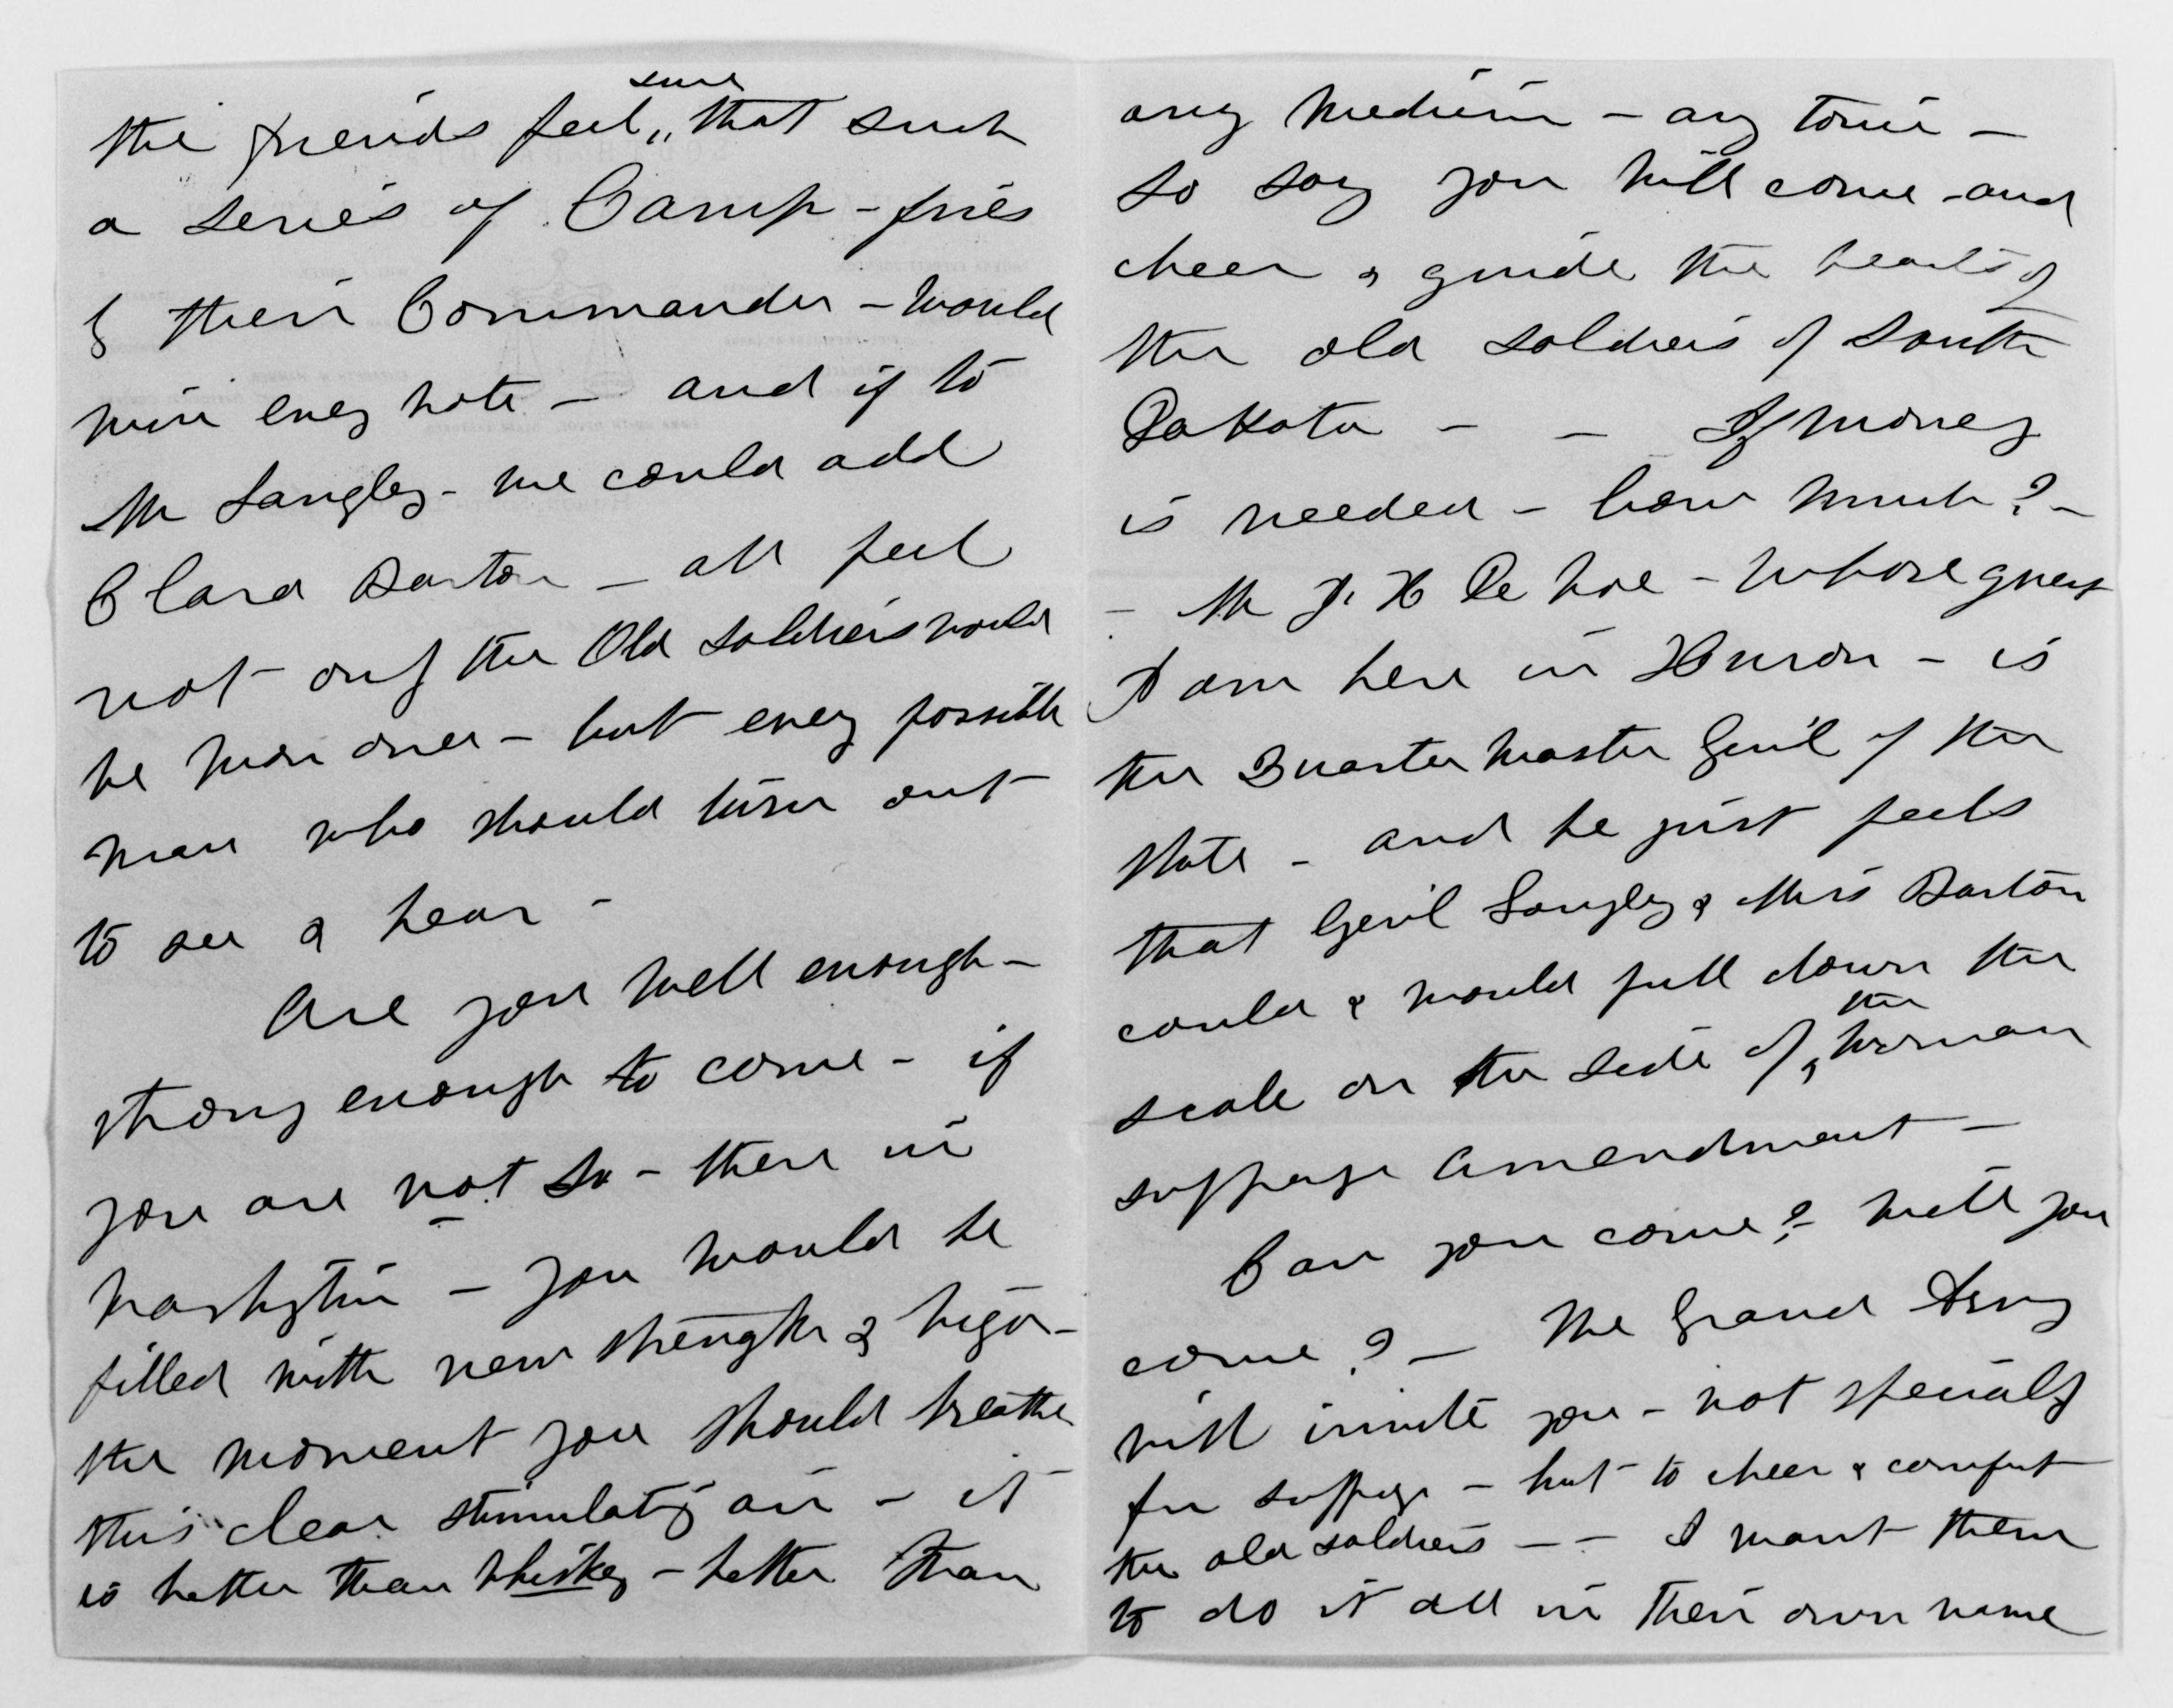 the friends feel sure that such
a series of Camp-fires
by their Commander - would
win every vote - and if to
Mr Langley - we could add
Clara Barton - all feel
not only the Old Soldiers would
be won over - but every possible
man who should turn out
to see & hear -
Are you well enough -
strong enough to come - if
you are not so - there in
Washgtin - you would be
filled with new strength & vigor -
the moment you should breathe
this clear stimulatg air - it
is better than whiskey - better than
any medicin - any tonic -
So say you will come - and
cheer & guide the hearts of
the old soldiers of South
Dakota - - If money
is needed - how much? -
- Mr J. H. De Voe - whose guest
I am here in Huron - is
the Quarter Master Gen'l of the
State - and he just feels
that Gen'l Langley & Miss Barton
could & would pull down the
scale on the side of the woman
suffrage amendment -
Can you come? - Will you
come? - The Grand Army
will invite you - not specially
for suffrage - but to cheer & comfort
the old soldiers - - I want them
to do it all in their own name